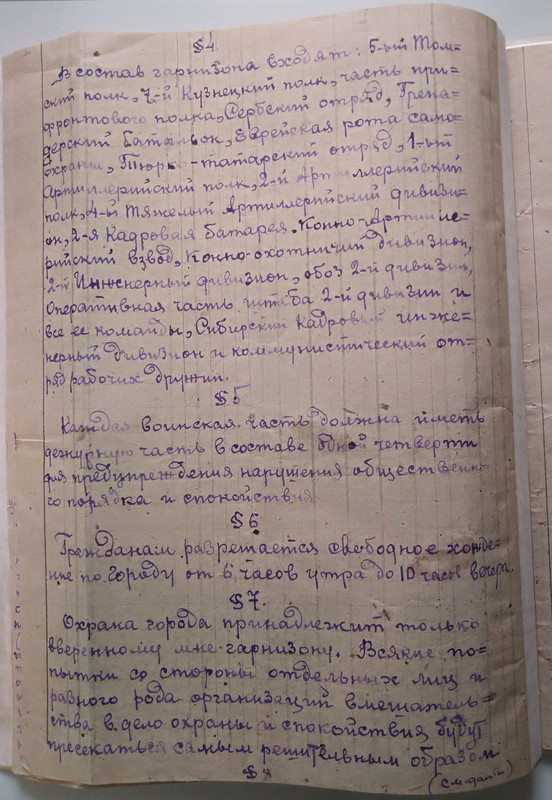 § 4.
В состав гарнизона входят: 5-ый Том=
ский полк, 7-й Кузнецкий полк, часть при=
фронтового полка, Сербский отряд, Грена=
дерский батальон, Еврейская рота само=
охраны, Тюрко-татарский отряд, 1-ый
Артиллерийский полк, 2-й Артиллерийский
полк, 4-й Тяжелый Артиллерийский дивизи=
он, 2-я Кадровая батарея. Конно-Артилле=
рийский взвод, Конно-охотничий дивизион,
2-й Инженерный дивизион, обоз 2-й дивизии,
Оперативная часть штаба 2-й дивизии и
все ее команды, Сибирский кадровый инже=
нерный дивизион и коммунистический от=
ряд рабочих дружин.
§ 5
Каждая воинская часть должна иметь
дежурную часть в составе одной четверти
для предупреждения нарушения общественно=
го порядка и спокойствия.
§ 6
Гражданам разрешается свободное хожде=
ние по городу от 6 часов утра до 10 часов вечера.
§ 7.
Охрана города принадлежит только
вверенному мне гарнизону. Всякие по=
пытки со стороны отдельных лиц и
разного рода организаций вмешатель=
ства в дело охраны и спокойствия будут
пресекаться самым решительным образом.
§ 8
(см. далее)